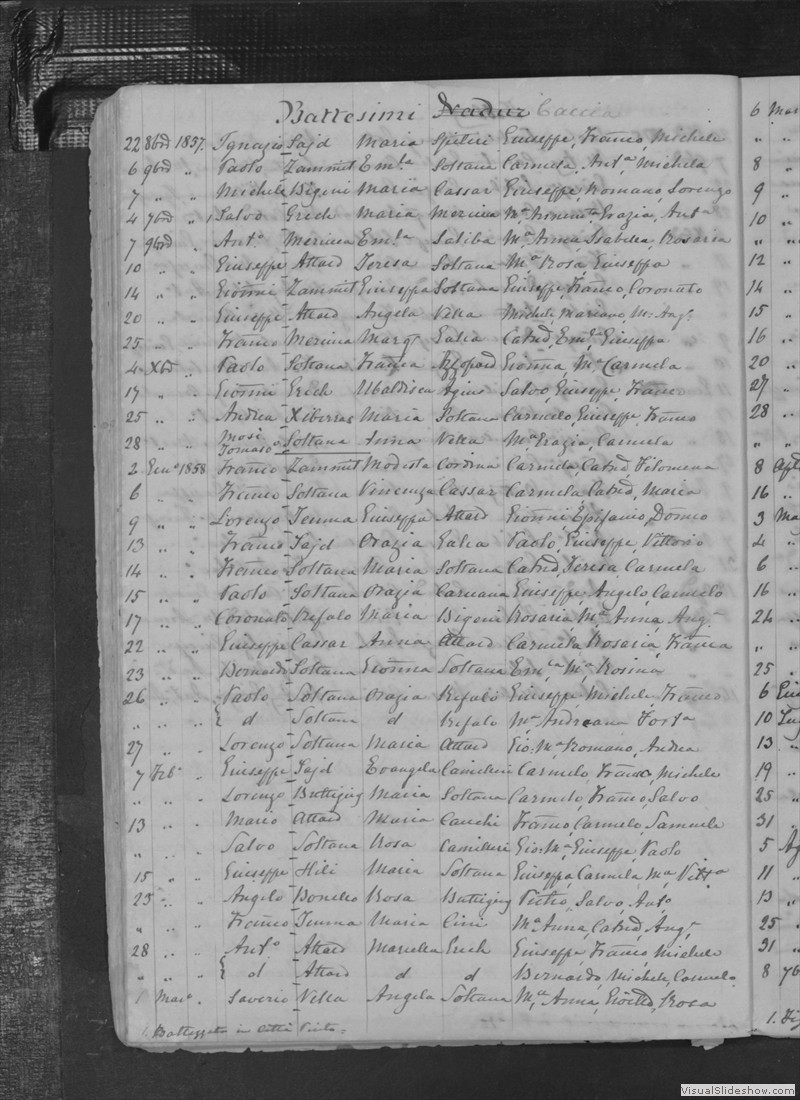 Battesimi Nadur Caccia
22 8bre 1857. Ignazio Sajd Maria Spiteri Giuseppe, Franco, Michele
6 9bre " Paolo Zammit Em.la Soltana Carmela, Ant.a, Michela
7 " " Michele Bigeni Maria Cassar Giuseppe, Romano, Lorenzo
4 7bre " Salvo Grech Maria Mercieca M.a Grazia, Ant.a
7 9bre " Ant.o Mercieca Em.la Saliba M.a Anna, Isabella, Rosaria
10 " " Giuseppe Attard Teresa Soltana M.a Rosa, Giuseppa
14 " " Gioanni Zammit Giuseppa Soltana Giuseppe, Franco, Coronato
20 " " Giuseppe Attard Angela Vella Michele, Mariano, M. Ang.
25 " " Franco Mercieca Marg. Galea Catred, Em.la, Giuseppa
4 Xbre " Paolo Soltana Franca Azzopard Gioanna, M.a Carmela
17 " " Gioanni Grech Ubaldisca Agius Salvo, Giuseppe, Franco
25 " " Andrea Xiberras Maria Soltana Carmelo, Giuseppe, Franco
28 " " Mosi Tomaso Soltana Anna Vella M.a Grazia, Carmela
2 Gen.o 1858 Franco Zammit Modesta Cordina Carmela, Catred, Filomena
6 " " Franco Soltana Vincenza Cassar Carmela, Catred, Maria
9 " " Lorenzo Tenma Giuseppa Attard Gioanni, Epifanio, Domco
13 " " Franco Sajd Orazia Galea Paolo, Giuseppe, Vittorio
14 " " Franco Soltana Maria Soltana Catred, Teresa, Carmela
15 " " Paolo Soltana Orazia Caruana Giuseppe, Angelo, Carmelo
17 " " Coronato Refalo Maria Bigeni Rosaria, M.a Anna, Ang.
22 " " Giuseppe Cassar Anna Attard Carmela, Rosaria, Franca
23 " " Bernardo Soltana Gioanna Soltana Em.la, M.a Rosina
26 " " Paolo Soltana Orazia Refalo Giuseppe, Michele, Franco
" " " { d Soltana d Refalo M.a Andreana, Fort.a
27 " " Lorenzo Soltana Maria Attard Gio. M.a, Romano, Andrea
7 Feb. " Giuseppe Sajd Evangela Camilleri Carmelo, Franco, Michele
" " " Lorenzo Buttigieg Maria Soltana Carmelo, Franco, Salvo
13 " " Mario Attard Maria Cauchi Franco, Carmelo, Samuele
" " " Salvo Soltana Rosa Camilleri Gio. M.a, Giuseppe, Paolo
15 " " Giuseppe Hili Maria Soltana Giuseppa, Carmela, M.a Vitt.a
25 " " Angelo Boncheo Rosa Buttigieg Pietro, Salvo, Ant.o
" " " Franco Tenma Maria Cini M.a Anna, Catred, Ang.
28 " " Ant.o Attard Mariella Grech Giuseppe, Franco, Michele
" " " { d Attard d d Bernardo, Michele, Carmelo
1 Mar.o " Saverio Vella Angela Soltana M.a Anna, Rosa
Battezzato in Città
6 Mar
" "
8 "
9 "
10 "
" "
12 "
14 "
15 "
16 "
20 "
27 "
28 "
" "
8 Aple
16 "
3 Ma
4 "
6 "
16 "
24 "
" "
25 "
6 Giu
10 Lug
13 "
19 "
25 "
31 "
5 Ag
11 "
13 "
25 "
31 "
8 7b
VisualSlideshow.com